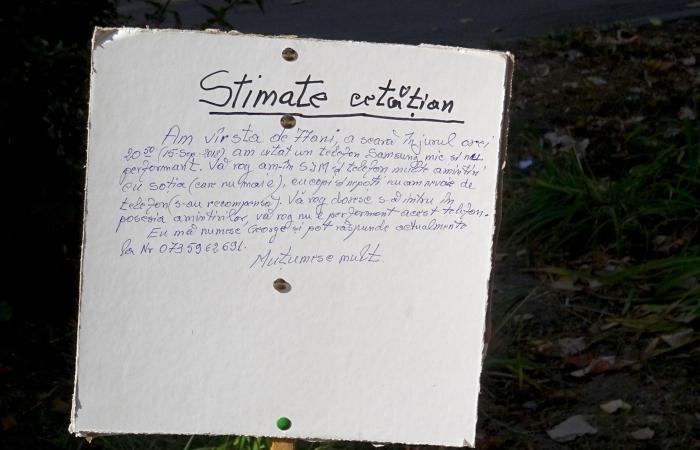 Stimate cetățian
Am vîrsta de 77ani, a seară în jurul orei
20⁵⁰ (15-Sep-2012) am uitat un telefon Samsung mic si nu
performant. Vă rog am în SIM și telefon multe amintiri
cu sotia (care nu mai e), cu copii si nepoti nu am nevoie de
telefon (s-au recompensa). Vă rog doresc s-ă intru în
posesia amintirilor, vă rog nu e performant acest telefon.
Eu mă numesc George și pot răspunde actualmente
la Nr. 0735962691.
Mulțumesc mult.